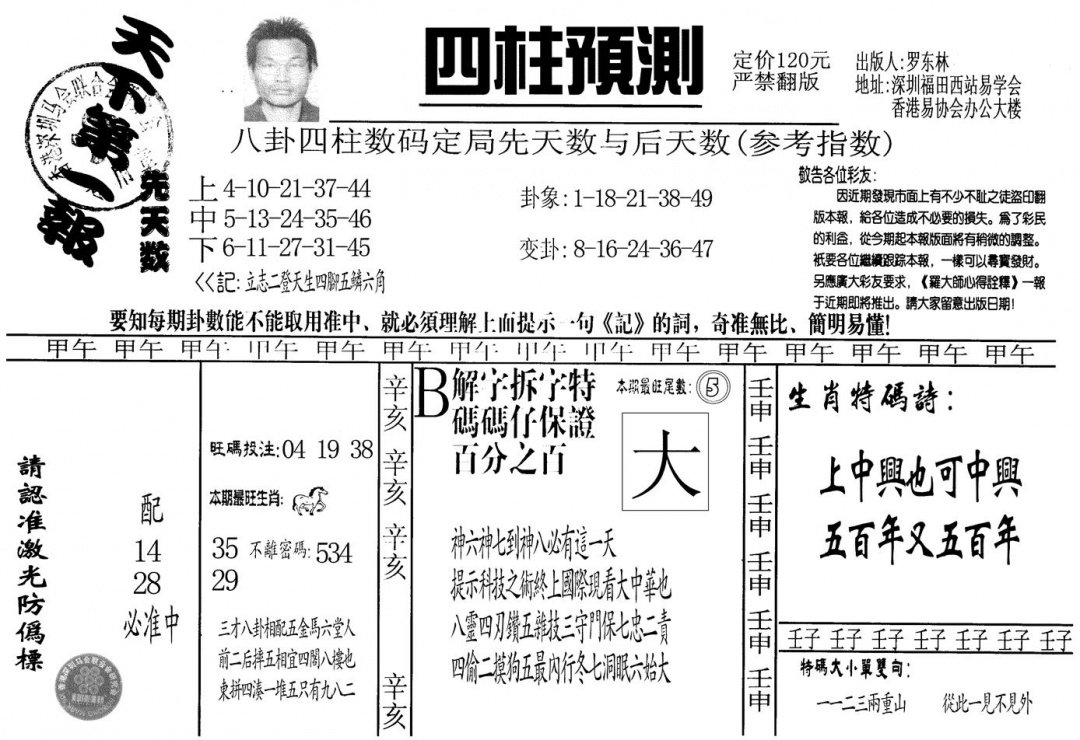 天下第一報
四柱預測
定价120元
严禁翻版
出版人:罗东林
地址:深圳福田西站易学会
香港易协会办公大楼
八卦四柱数码定局先天数与后天数(参考指数)
先天数
上4-10-21-37-44
中5-13-24-35-46
下6-11-27-31-45
<<記:立志二登天生四腳五鱗六角
卦象:1-18-21-38-49
变卦:8-16-24-36-47
敬告各位彩友:
因近期發現市面上有不少不耻之徒盜印翻
版本報,給各位造成不必要的損失。爲了彩民
的利益,從今期起本報版面將有稍微的調整。
衹要各位繼續跟踪本報,一樣可以尋寶發財。
另應廣大彩友要求,《羅大師心得詮釋》一報
于近期即將推出。請大家留意出版日期!
要知每期卦數能不能取用准中、就必須理解上面提示一句《記》的詞,奇准無比、簡明易懂!
甲午 甲午 甲午 甲午 甲午 甲午 甲午 甲午 甲午 甲午 甲午 甲午 甲午 甲午 甲午
請認准激光防僞標
配
14
28
必准中
旺碼投注:04 19 38
本期最旺生肖:
35 不離密碼:534
29
三才八卦相配五金馬六堂人
前二后摔五相宜四閣八樓也
東拼四湊一堆五只有九八二
辛亥
辛亥
辛亥
辛亥
B解字拆字特
碼碼仔保證
百分之百
本期最旺尾數:5
大
神六神七到神八必有這一天
提示科技之術終上國際現看大中華也
八靈四刃鑽五雜技三守門保七忠二責
四偷二摸狗五最內行冬七洞眠六始大
壬申
壬申
壬申
壬申
壬申
壬申
生肖特碼詩:
上中興也可中興
五百年又五百年
壬子 壬子 壬子 壬子 壬子 壬子 壬子
特碼大小單雙句:
一一二三兩重山 從此一見不見外